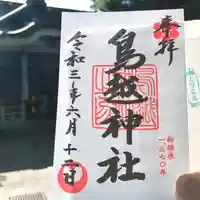 奉拝
御鎮座
一、三七〇年
鳥越神社
令和三年六月十二日